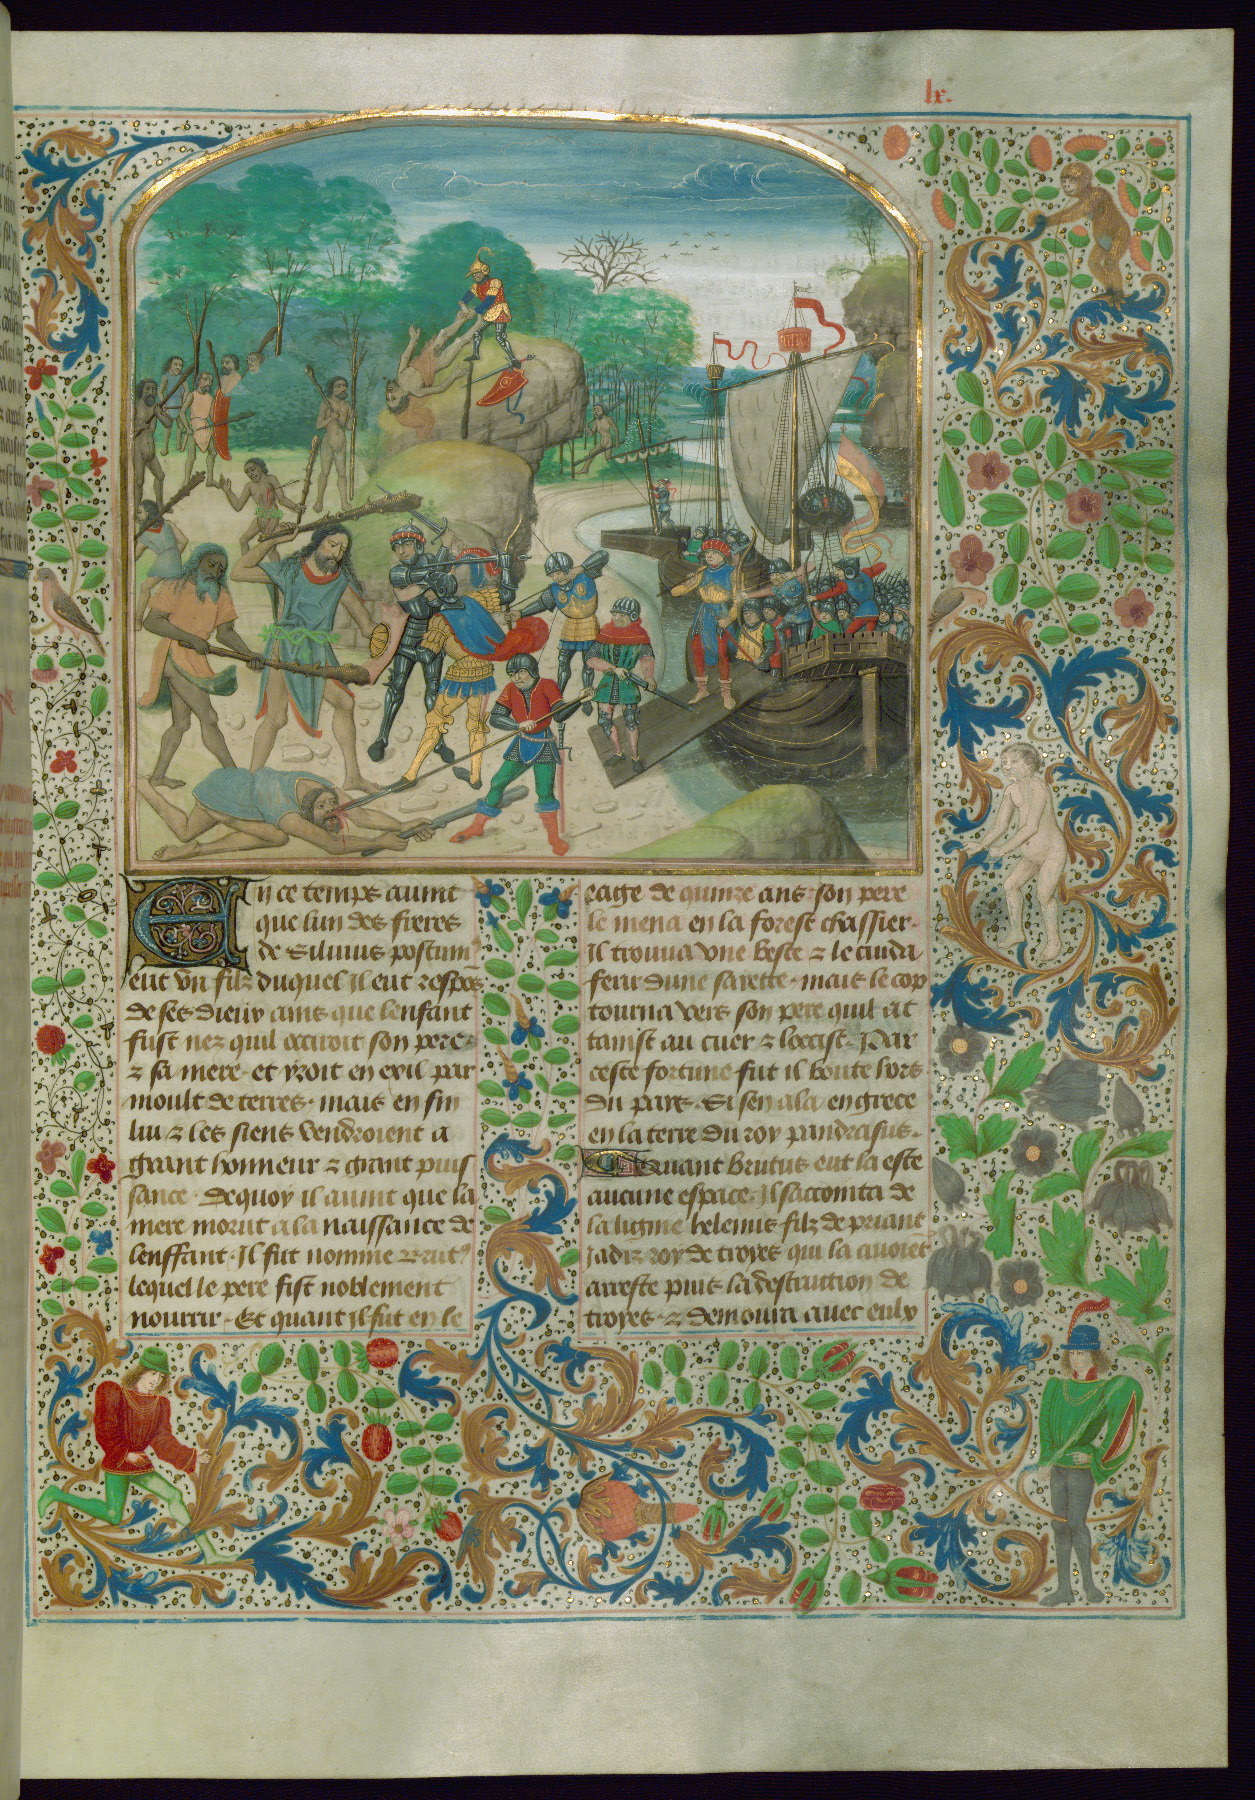 lx.
En ce temps auint
que lun des freres
de Siluius postum9
eut vn filz duquel Il eut respos
de ses dieux ains que lenfant
fust nez quil occiroit son pere
⁊ sa mere. et yroit en exil par
moult de terres. mais en fin
lui ⁊ les siens vendroient a
grant honneur ⁊ grant puis
sance. Dequoy il auint que la
mere morut a la naissance de
lenffant. Il fut nomme brut9
lequel le pere fist noblement
nourrir. Et quant il fut en le
eage de quinze ans son pere
le mena en la forest chassier.
Il trouua vne beste ⁊ le cuida
ferir dune saiette. mais le cop
tourna vers son pere quil at
taint au cuer ⁊ loccist. Par
ceste fortune fut il boute hors
du pays. Si sen ala en grece
en la terre du roy pandrasus.
Quant brutus eut la este
aucune espace. Il saccointa de
la lugnie helenus filz de priant
Jadiz roy de troyes qui la auoiet
arreste puis la destruction de
troyes. ⁊ demoura auec eulx